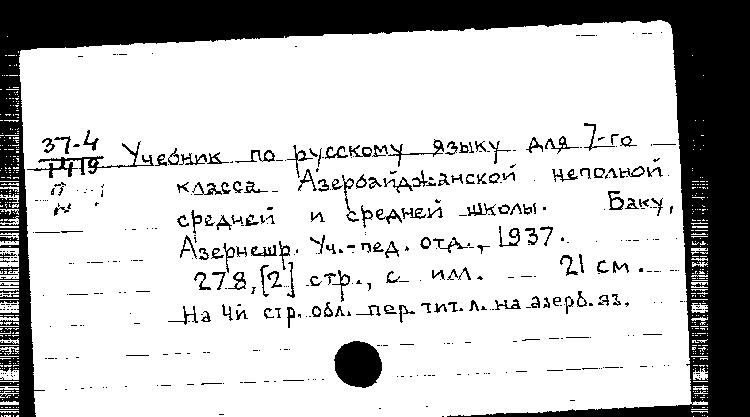 37-4
1419
Учебник по русскому языку для 7-го
класса Азербайджанской неполной
средней и средней школы. Баку,
Азернешр. Уч.-пед. отд., 1937.
278,[2] стр., с илл. 21 см.
На 4й стр. обл. пер. тит. л. на азерб. яз.